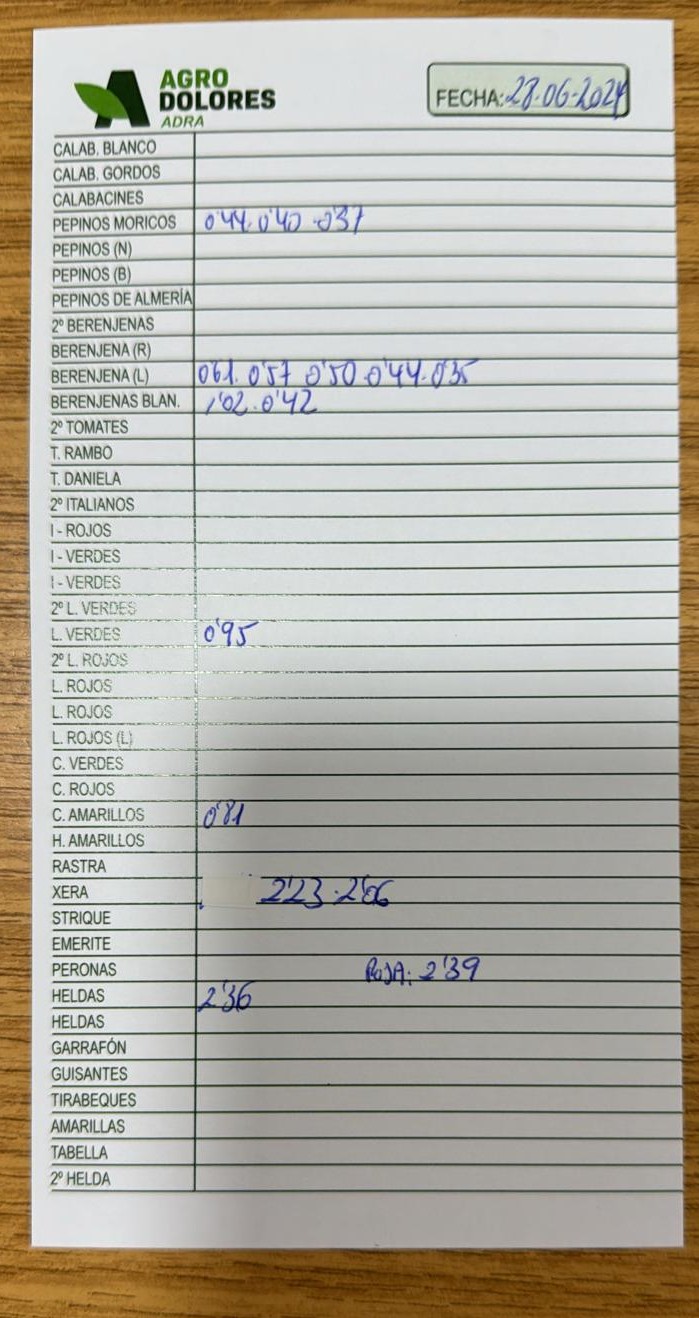 AGRO
DOLORES
ADRA
FECHA: 28-06-2024
CALAB. BLANCO
CALAB. GORDOS
CALABACINES
PEPINOS MORICOS 0'44. 0'40 - 0'37
PEPINOS (N)
PEPINOS (B)
PEPINOS DE ALMERÍA
2º BERENJENAS
BERENJENA (R)
BERENJENA (L) 0'61. 0'57 0'50 - 0'44 - 0'35
BERENJENAS BLAN. 1'02 - 0'42
2º TOMATES
T. RAMBO
T. DANIELA
2º ITALIANOS
I - ROJOS
I - VERDES
I - VERDES
2º L. VERDES
L. VERDES 0'95
2º L. ROJOS
L. ROJOS
L. ROJOS
L. ROJOS (L)
C. VERDES
C. ROJOS
C. AMARILLOS 0'81
H. AMARILLOS
RASTRA
XERA 2'23 - 2'06
STRIQUE
EMERITE
PERONAS ROJA: 2'39
HELDAS 2'36
HELDAS
GARRAFÓN
GUISANTES
TIRABEQUES
AMARILLAS
TABELLA
2º HELDA